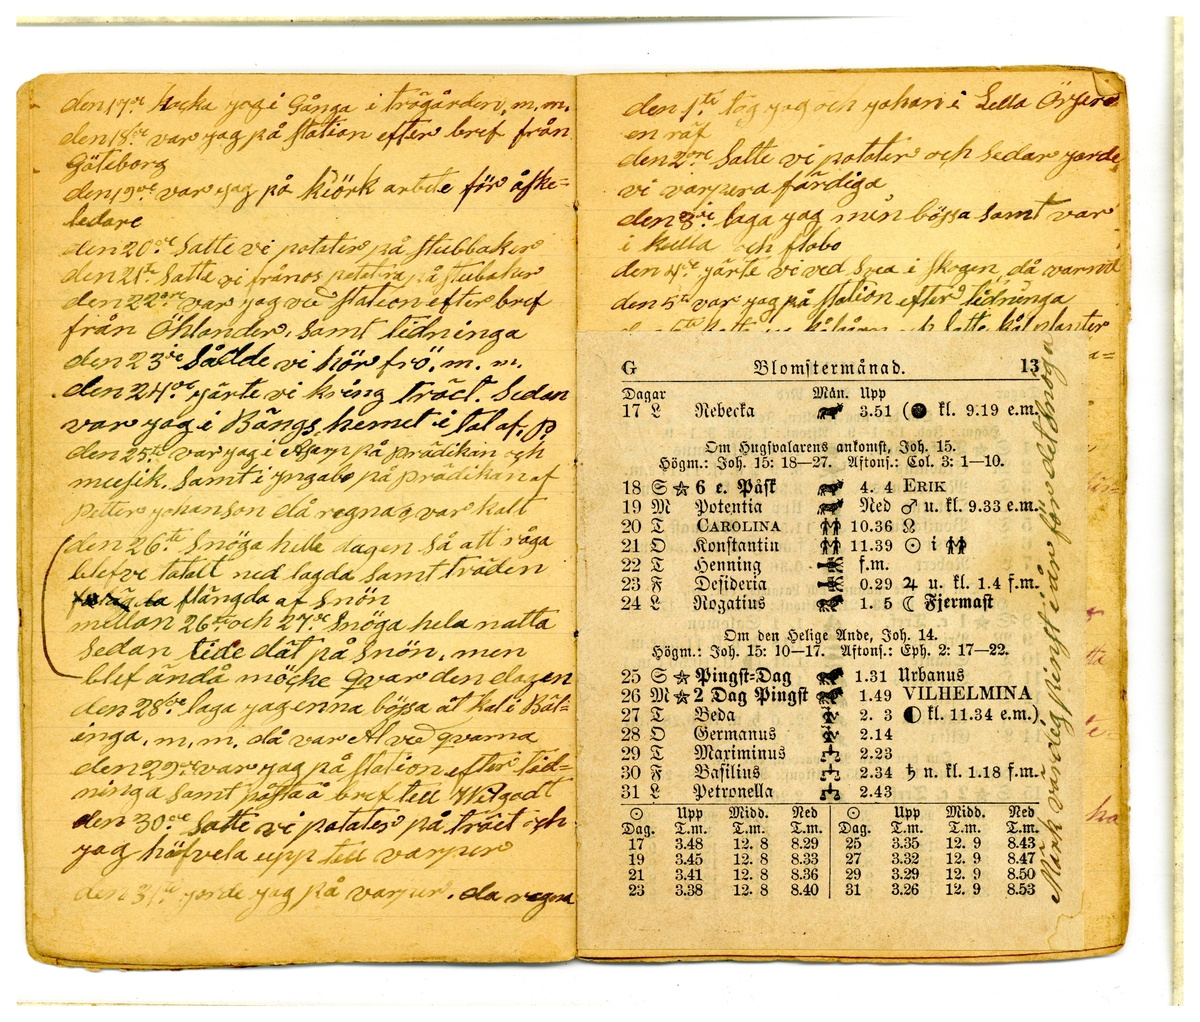 den 17de hocka jag i Gånga i trägården, m. m.
den 18de var jag på station efter bref från
Göteborg
den 19de var jag på kiörk arbete för åske=
ledare
den 20de Satte vi potater på stubbaker
den 21de Satte vi frånos på stubaker
den 22dre var jag ved station efter bref
från Öhlander, Samt tidninga
den 23de Sådde vi hör frö. m. m.
den 24de gärte vi kring träct. Sedan
var jag i Bängs hemet i tal af. p.
den 25te var jag i Asarp på prädikan och
musik. Samt i yngabo på prädikan af
Petter Johanson då regna o var kalt
den 26te Snöga hella dagen Så att råga
blef vi totalt ned lagda Samt träden
flängda af Snön
mellan 26te och 27de Snöga hela natta
Sedan tide dät på Snön, men
blef ändå möcke qvar den dagen
den 28de laga jag enna bössa åt Kal i Bät=
inga, m. m. då var Alved qvarna
den 29de var jag på station efter tid=
ninga Samt påsta å bref till Witgodt
den 30de Satte vi potater på träct och
jag höfvela upp till varpur
den 31te jorde jag på varpur. da regna
den 1sta tög jag och Johan i Lella Örjere
en räf
den 2dre Satte vi potater och Sedar jorde
vi varpera färdiga
den 3de laga jag min bössa Samt var
i kulla och flobo
den 4de gärte vi ved Svea i Skogen, då var
den 5te var jag på station efter tidninga
G Blomstermånad. 13
Dagar Mån. Upp
17 L Rebecka 3.51 (● kl. 9.19 e.m.
Om Hugsvalarens ankomst, Joh. 15.
Högm.: Joh. 15: 18—27. Aftons.: Col. 3: 1—10.
18 S ☆ 6 e. Påsk 4. 4 ERIK
19 M Potentia Ned ♂ u. kl. 9.33 e.m.
20 T CAROLINA 10.36 ☊
21 O Konstantin 11.39 ☉ i ♊
22 T Henning f.m.
23 F Desideria 0.29 ♃ u. kl. 1.4 f.m.
24 L Rogatius 1. 5 ☾ Fjermast
Om den Helige Ande, Joh. 14.
Högm.: Joh. 15: 10—17. Aftons.: Eph. 2: 17—22.
25 S ☆ Pingst=Dag 1.31 Urbanus
26 M ☆ 2 Dag Pingst 1.49 VILHELMINA
27 T Beda 2. 3 ◐ kl. 11.34 e.m.)
28 O Germanus 2.14
29 T Maximinus 2.23
30 F Basilius 2.34 ♄ n. kl. 1.18 f.m.
31 L Petronella 2.43
☉ Upp Midd. Ned ☉ Upp Midd. Ned
Dag. T.m. T.m. T.m. Dag. T.m. T.m. T.m.
17 3.48 12. 8 8.29 25 3.35 12. 9 8.43
19 3.45 12. 8 8.33 27 3.32 12. 9 8.47
21 3.41 12. 8 8.36 29 3.29 12. 9 8.50
23 3.38 12. 8 8.40 31 3.26 12. 9 8.53
Märk värdig pingst i år för det snöga